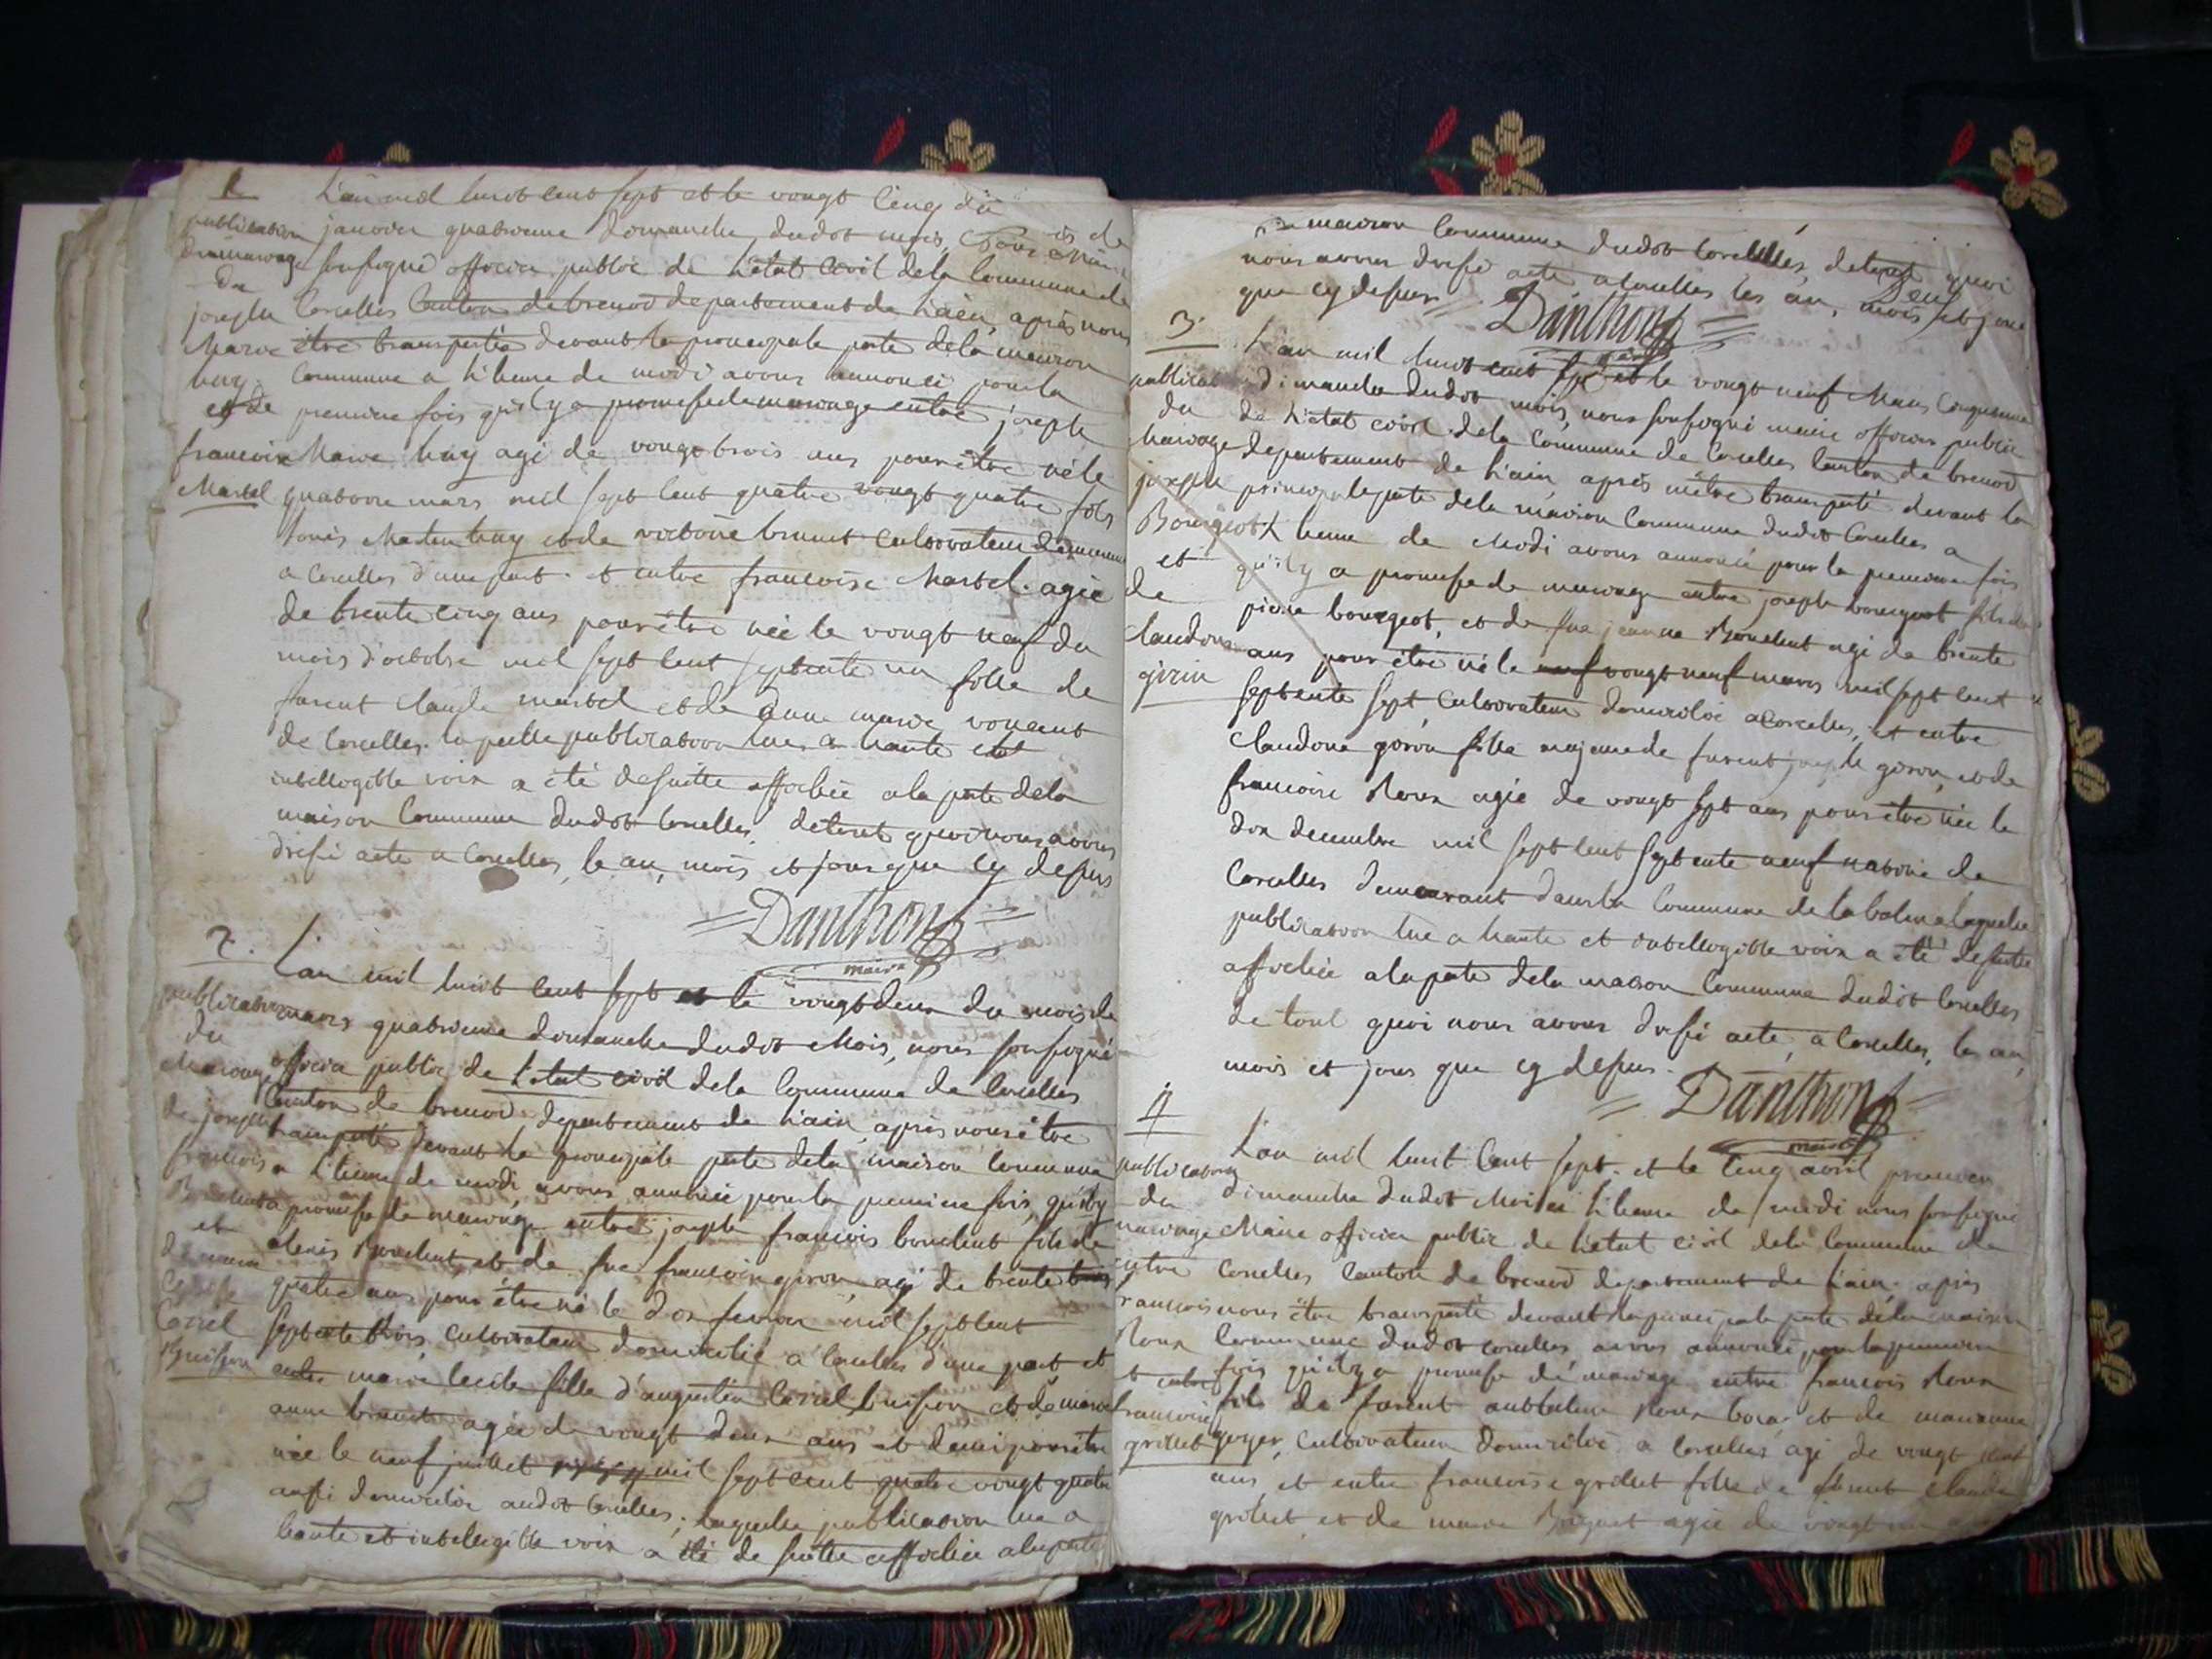 1
L'an mil huit cent sept et le vingt cinq du
publication janvier quatrieme dimanche dudot mois, Nous Maire
soussigné officier public de l'état civil dela commune de
du
joseph Corcelles Canton de brenod departement de l'ain, après nous
Marie être transporté devant la principale porte dela maison
huy commune a l'heure de midi avons annoncé pour la
et de premiere fois quil y a promesse de mariage entre joseph
francoise Marie huy agé de vingt trois ans pour être né le
Martel quatorze mars mil sept cent quatre vingt quatre fils
huy et de brunet cultivateur
a Corcelles d'une part. et entre francoise Martel. agée
de trente cinq ans pour être née le vingt neuf du
mois d'octobre mil sept cent septente un fille de
furent Claude martel et de anne marie
de Corcelles. laquelle publication lue a haute et
intellogible voix a été desuitte affichée ala porte dela
maison Commune dudot Corcelles, detout quoi nous avons
dressé acte a Corcelles, le an, mois et jour que cy dessus
Danthon
maire
2.
L'an mil huit cent sept et le vingt deux du mois de
publication mars quatrieme dimanche dudot Mois, nous soussigné
du
Mariage officier public de l'etat civil dela Commune de Corcelles
Canton de brenod departement de l'ain, après nous être
de joseph transporté devant la principale porte dela maison commune
francois a l'heure de midi, avons annoncé pour la premiere fois, quil y
Bonchut a promesse de mariage entre joseph francois bonchut fils de
et alexis Bonchut et de fue francoise giron, agé de trente
de marie
Cecile quatre ans pour être né le dix fevrier mil sept cent
Carrel septente trois, cultivateur domicilié a Corcelles d'une part et
Buisson entre marie Cecile fille d'augustin Carrel buisson et de marie
anne brunet agée de vingt deux ans et demi pour être
née le neuf juillet mil sept cent quatre vingt quatre
aussi domicilié audot Corcelles; laquelle publication lue a
haute et intelligible voix a été de suitte affichée ala porte
de maison Commune dudot Corcelles, detout quoi
nous avons dressé acte a Corcelles les an, mois et jour
que cy dessus
Danthon
maire
3.
L'an mil huit cent sept et le vingt neuf Mars cinquieme
publication dimanche dudot mois, nous soussigné maire officier public
du de l'etat civil. dela Commune de Corcelles Canton de brenod
Mariage departement de l'ain, après m'être transporté devant la
joseph principale porte dela maison Commune dudot Corcelles a
Bourgeot heure de Midi avons annoncé pour la premiere fois
et qu'il y a promesse de mariage entre joseph bourgeot fils de
de pierre bourgeot, et de fue jeanne Bonchut agé de trente
Claudine ans pour être né le neuf vingt neuf mars mil sept cent
girin septente sept, cultivateur domicilié a Corcelles, et entre
Claudine giron fille majeure de furent joseph giron, et de
francoise Roux agée de vingt sept ans pour être née le
dix decembre mil sept cent septente neuf native de
Corcelles demeurant dans la Commune de labalme laquelle
publication lue a haute et intelligible voix a été desuitte
affichée ala porte dela maison Commune dudit Corcelles
de tout quoi nous avons dressé acte, a Corcelles, les an,
mois et jour que cy dessus.
Danthon
maire
4
L'an mil huit cent sept. et le cinq avril premier
publication dimanche dudot Mois a l'heure de midi nous soussigné
du
mariage Maire officier public de l'état civil dela Commune de
entre Corcelles Canton de brenod departement de l'ain. après
francois nous être transporté devant la principale porte dela maison
Roux Commune dudot Corcelles avons annoncé pour la premiere
et entre fois qu'il y a promesse de mariage entre francois Roux
francoise fils de furent anthelme Roux et de marianne
grillet cultivateur domicilié a Corcelles agé de vingt
ans, et entre francoise grillet fille de furent Claude
grillet et de marie agée de vingt